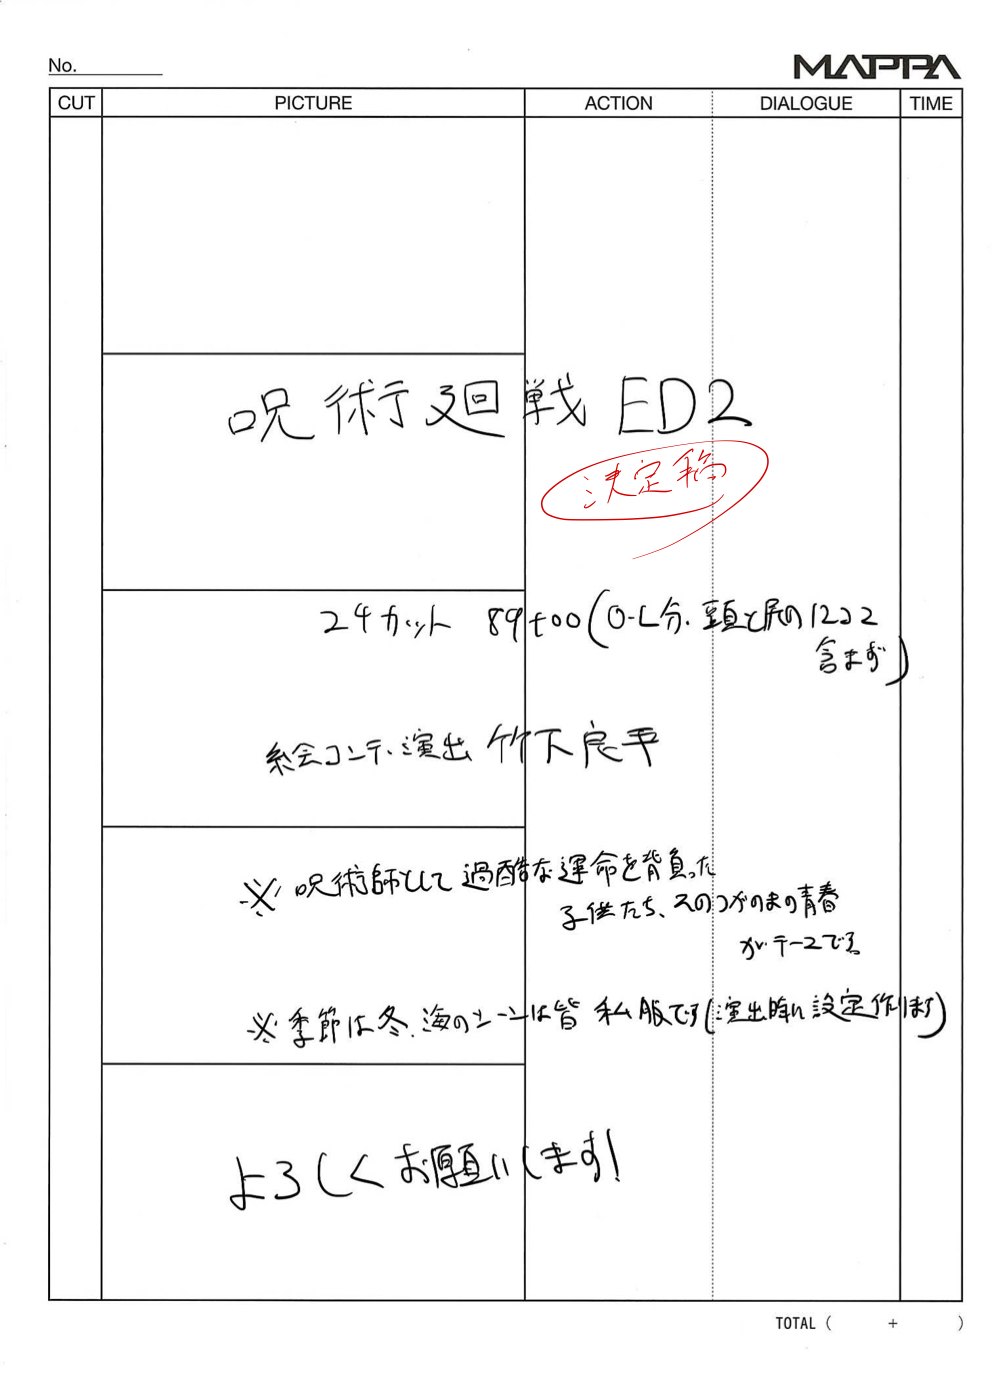 No.
MAPPA
CUT PICTURE ACTION DIALOGUE TIME
呪術廻戦 ED2
決定稿
24カット 89+00(O・L分、頭と尻の12コマ
含まず)
絵コンテ・演出 竹下良平
※呪術師として過酷な運命を背負った
子供たち、そのつかのまの青春
がテーマです
※季節は冬、海のシーンは皆私服です(演出時に設定作ります)
よろしくお願いします!
TOTAL ( + )